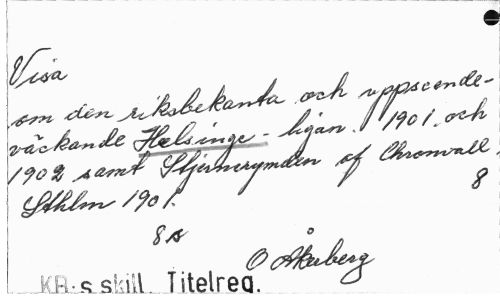 Visa
om den riksbekanta och uppscende-
väckande Helsinge-ligan. 1901. och
1902 samt Stjernrymden af Chronvall.
Sthlm 1901.
8
8 s
O Åkerberg
KB:s skill. Titelreg.